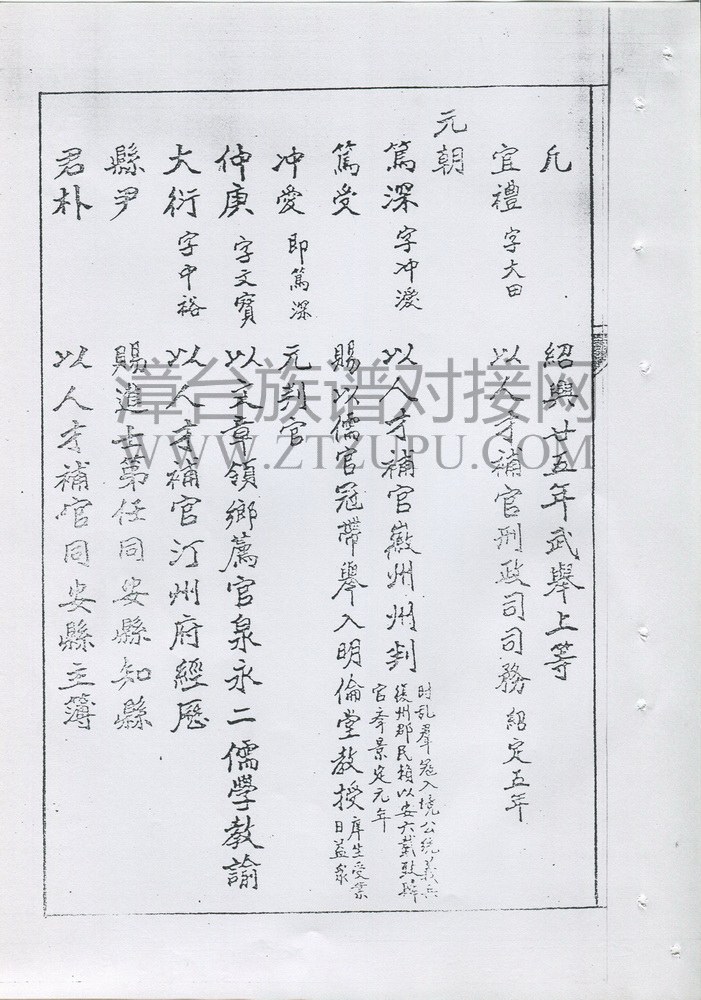 凡 紹興廿五年武舉上等
宜禮 字大田 以人才補官刑政司司務 紹定五年
元朝
篤深 字冲濲 以人才補官徽州州判
時乱羣冦入境公統義兵
復州郡民賴以安六載致
官 景定元年
篤受 賜以儒官冠帶舉入明倫堂教授
庠生受業
日益眾
冲愛 即篤深 元判官
仲庚 字文寳 以文章領鄉薦官泉永二儒學教諭
大衍 字中裕 以人才補官汀州府經厯
縣尹 賜進士第任同安縣知縣
君朴 以人才補官同安縣主簿
漳台族谱对接网
WWW.ZTZUPU.COM